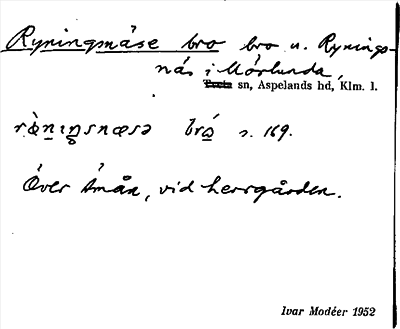 Ryningsnäse bro bro n. Rynings-
näs i Mörlunda,
sn, Aspelands hd, Klm. l.
s. 169.
Över Emån, vid herrgården.
Ivar Modéer 1952